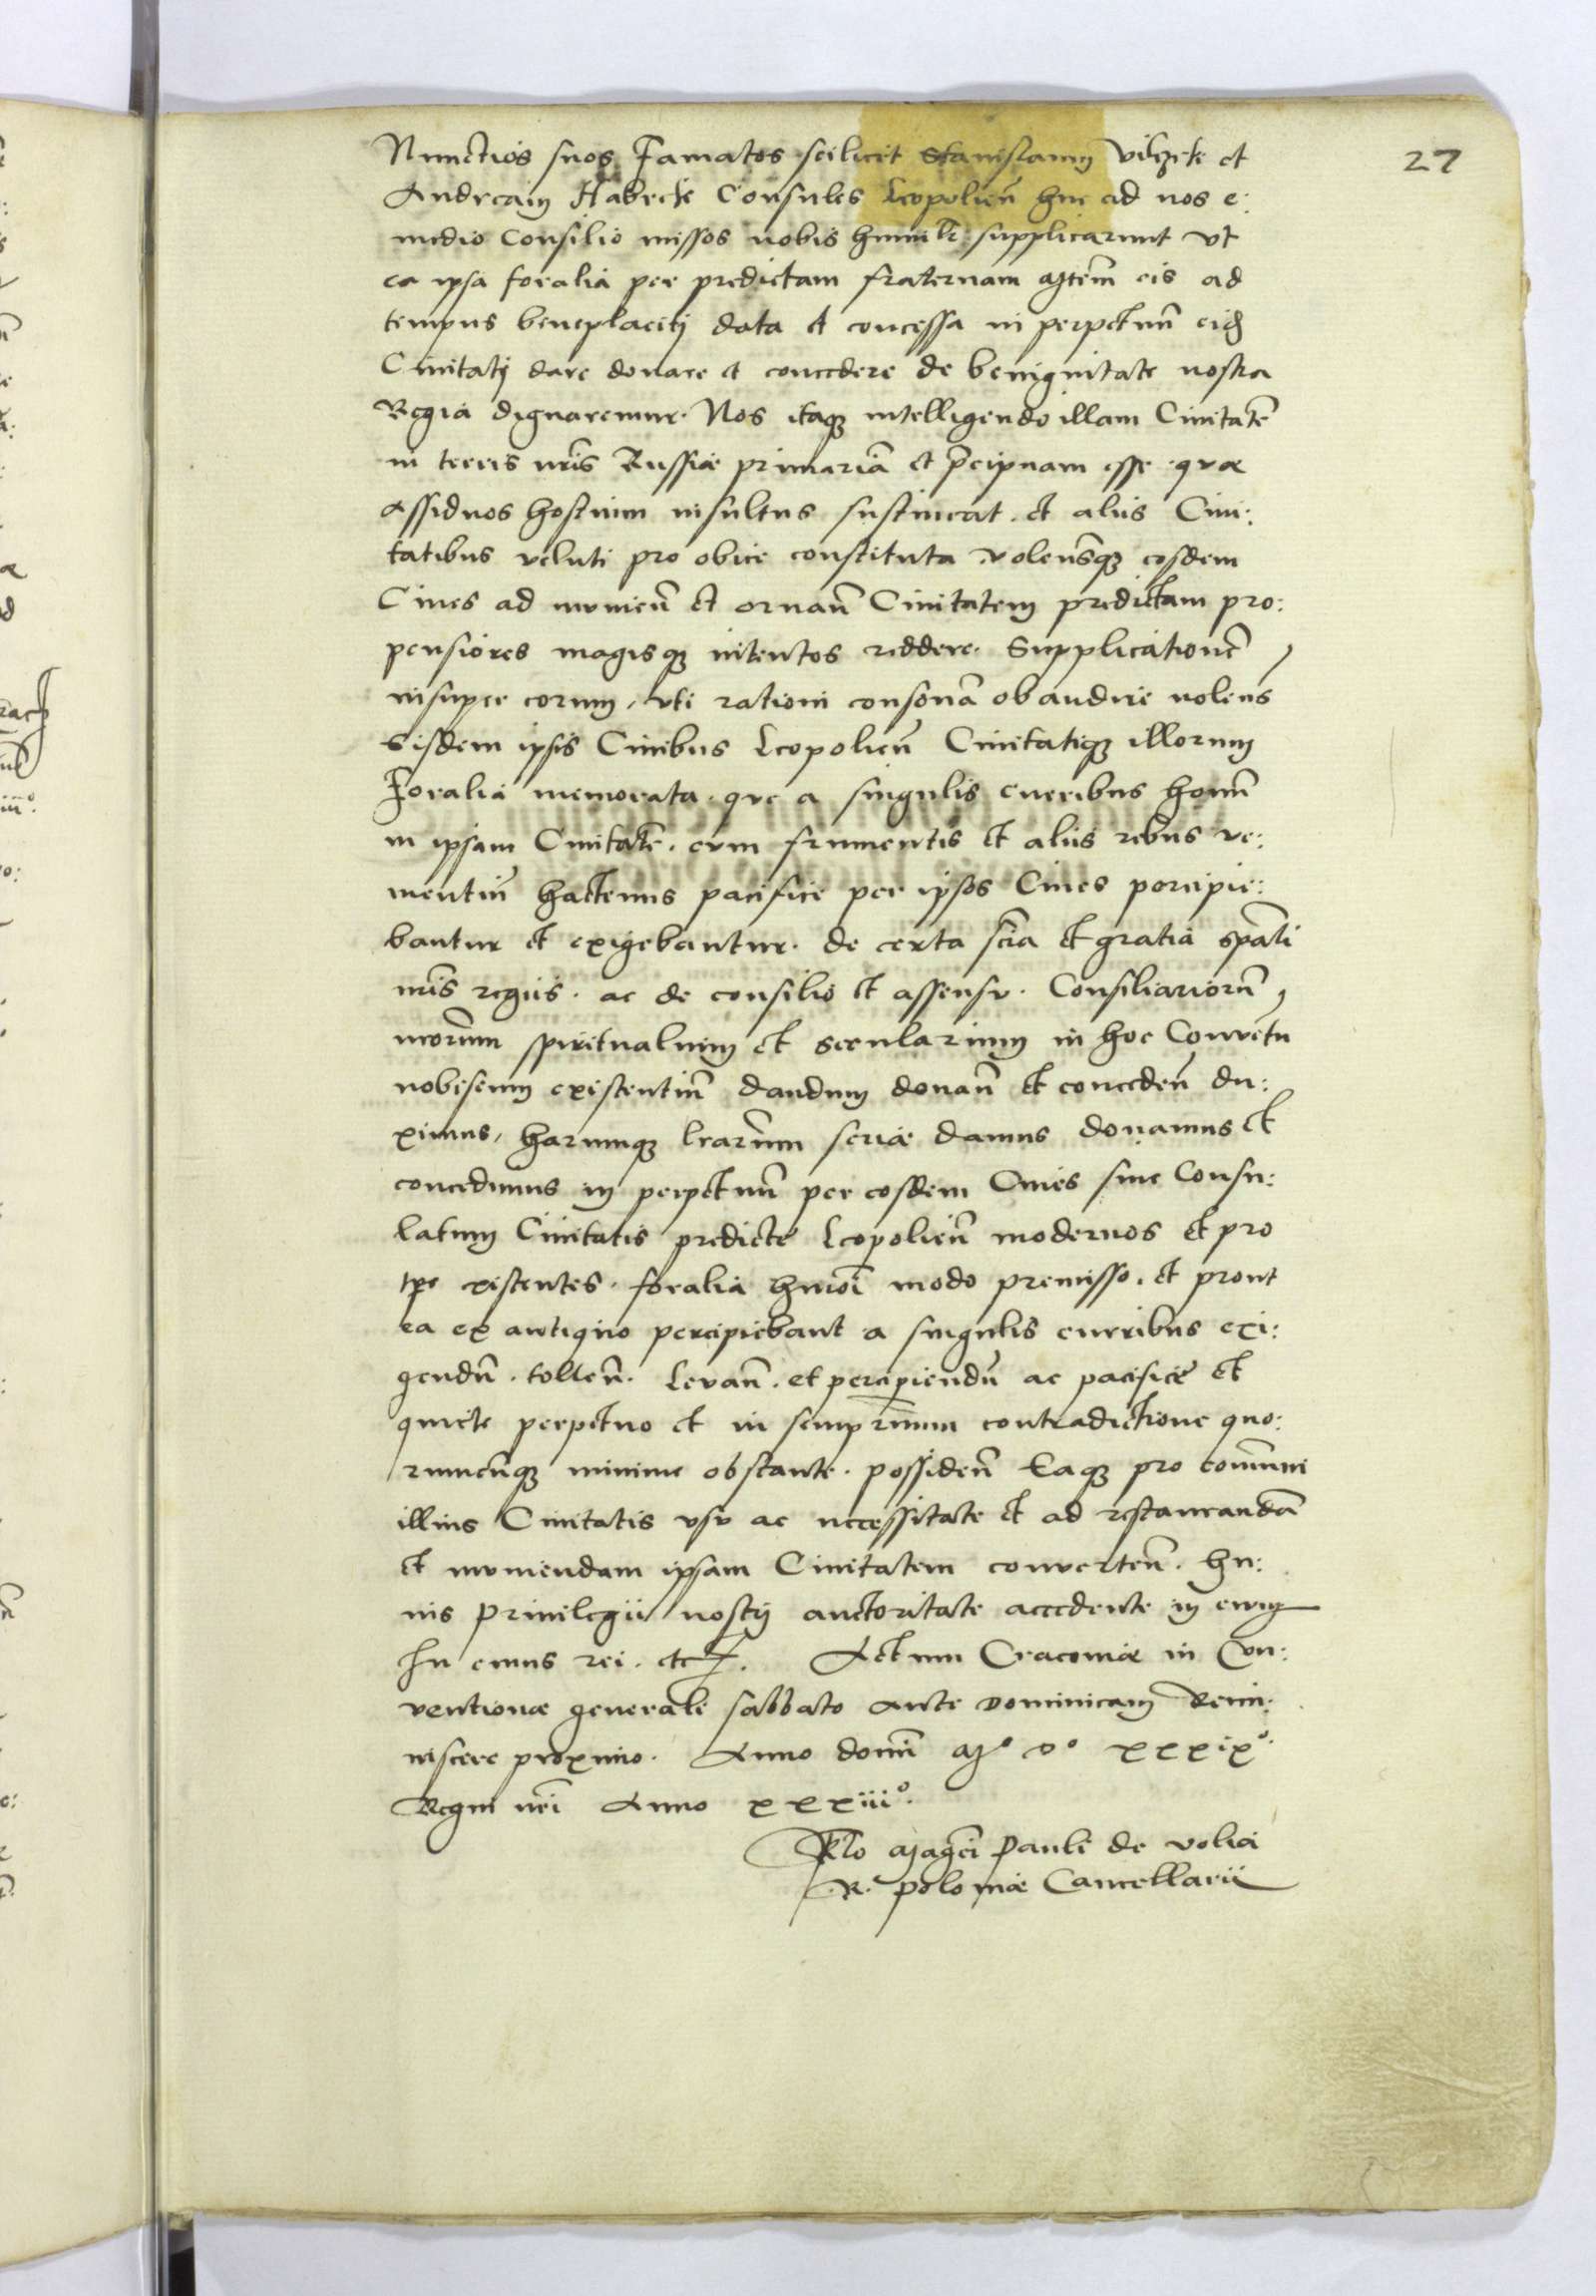 27
Nunctios suos Famatos scilicet Stanislaum vilczek et
Andream Habrek Consules Leopolien̄ huc ad nos e:
medio Consilio missos nobis humilr̄ supplicarunt vt
ea ipsa foralia per predictam fraternam Mtem̄ eis ad
tempus beneplacitj data et concessa in perpetuū eid
Ciuitatj dare donare et concedere de benignitate nostra
Regia dignaremur. Nos itaq intelligendo illam Ciuitatē
in terris nr̄is Russiae primariā et p̄cipuam esse quae
assiduos hostium insultus sustineat. et aliis Ciui:
tatibus veluti pro obice constituta volensq̄ eosdem
Ciues ad munien̄ et ornan̄ Ciuitatem predictam pro:
pensiores magisq intentos reddere. Supplicationē
insuper eorum, vti rationi consonā obaudire volens
Eisdem ipsis Ciuibus Leopolien̄ Ciuitatiq illorum
Foralia memorata. que a singulis curribus homī
in ipsam Ciuitatē. cum frumentis et aliis rebus ve:
nientiū hactenus pacifice per ipsos Ciues percipie:
bantur et exigebantur. de certa scīa et gratia spāli
nr̄is regiis. ac de consilio et assensu. Consiliariorū
nr̄orum spiritualium et secularium in hoc Conuētu
nobiscum existentiū dandum donan̄ et conceden̄ du:
ximus, harumq lr̄arum serie damus donamus et
concedimus in perpetuū per eosdem Ciues siue Consu:
latum Ciuitatis predicte Leopolien̄ modernos et pro
tpe existentes. foralia hmōi modo premisso. et prout
ea ex antiquo percipiebant a singulis curribus exi:
gendū. tollen̄. Levan̄. et percipiendū ac pacifice et
quiete perpetuo et in sempiternum contradictione quo:
rumcūq minime obstante. possiden̄ Eaq pro com̄uni
illius Ciuitatis vsu ac necessitate et ad restaurandā
et muniendam ipsam Ciuitatem conuerten̄. hu:
ius priuilegii nostrj auctoritate accedente in ewum
In cuius rei. etc. Actum Cracouiae in Con:
uentione generali sabbato ante Dominicam Remi:
niscere proximo. Anno dominī Mº Dº xxxixº.
Regni nr̄i Anno xxxiiiº.
Rlo Magci Pauli de volia
R. poloniae Cancellarii